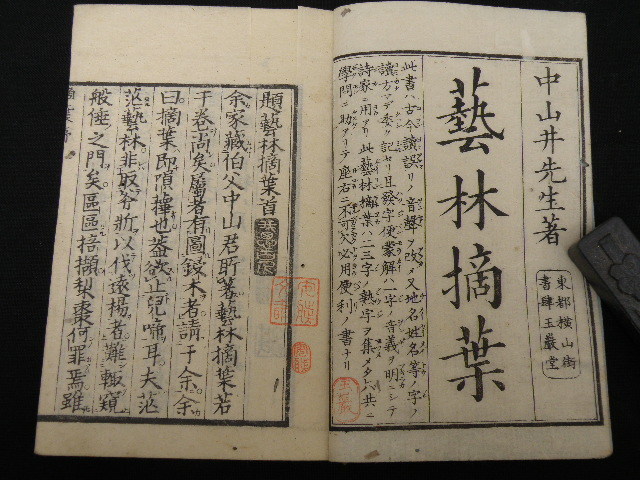 中山井先生著
藝林摘葉
東都橫山街
書肆玉巖堂
此書ハ古今讀誤リノ音聲ヲ改メ又地名姓名等ノ字ノ
讀方マデ委ク記セリ且發字便蒙解ハ一字ノ音義ヲ明ニシテ
詩家ニ用アリ此藝林摘葉ハ二三字ノ熟字ヲ集メタリ共ニ
學問ニ助アリテ座右ニ不可欠必用便利ノ書ナリ
題藝林摘葉首
余家藏伯父中山君所著藝林摘葉若
干卷尚矣屬者有圖鋟木者請于余余
曰摘葉即隕蘀也蓋欲止兒啼耳夫茫
茫藝林非取斧斨以伐遠揚者難輙窺
般倕之門矣區區掊擷梨棗何罪焉雖